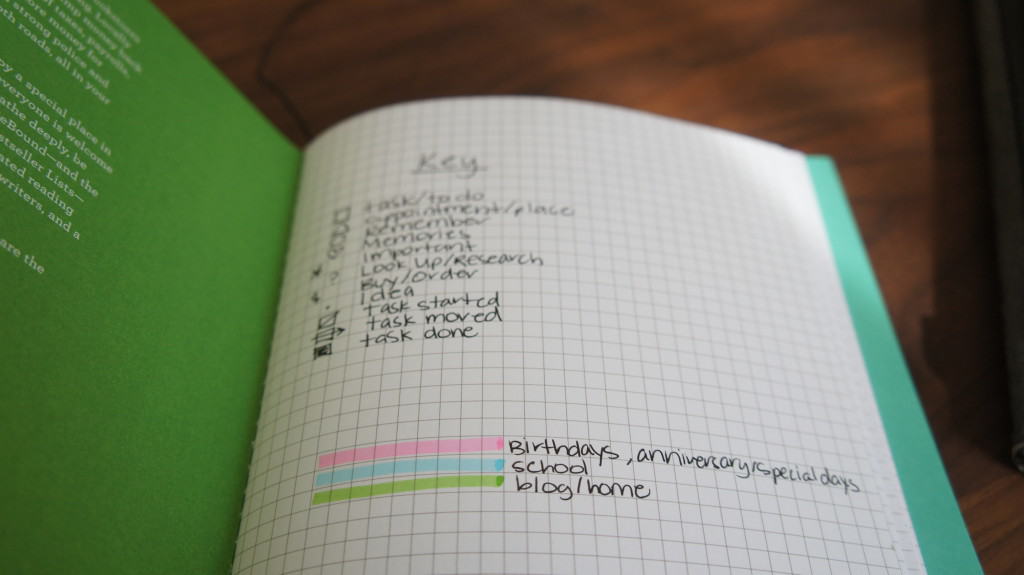 strong police and
roads, all in your
by a special place in
everyone is welcome
deeply, be
Bound—and the
Lists—
reading
writers, and a
are the
Key
task/to do
appointment/place
Remember
Memories
Important
Look Up/Research
Buy/Order
Idea
task started
task moved
task done
Birthdays, anniversary, special days
school
blog/home